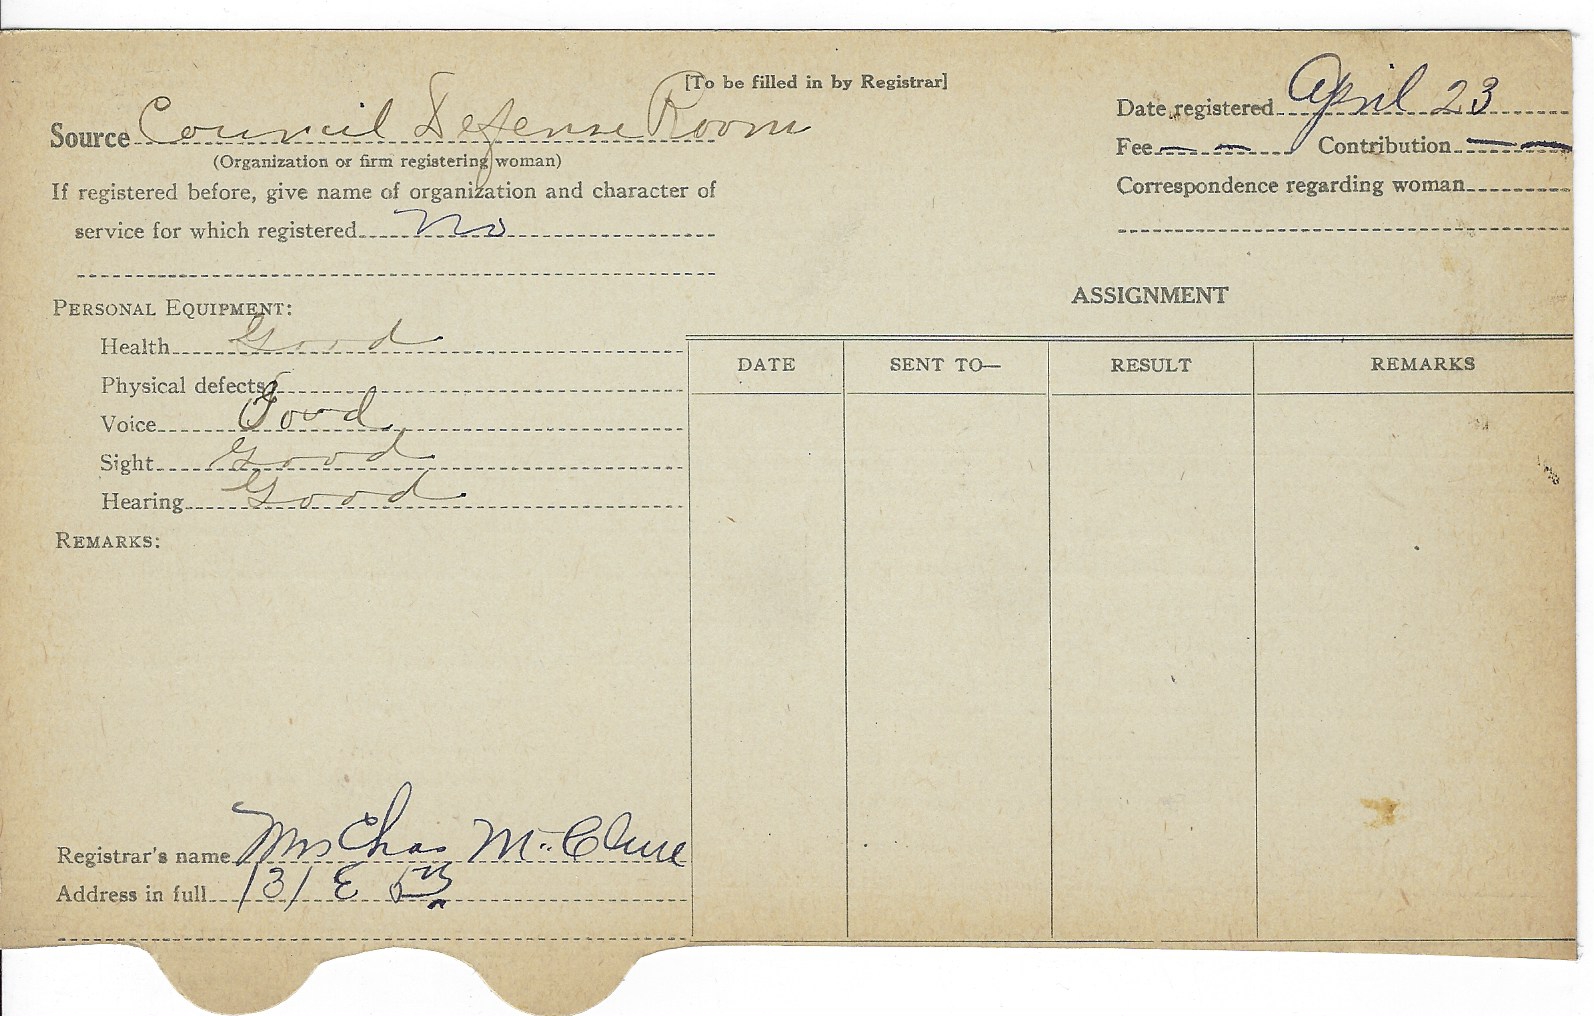 [To be filled in by Registrar]
Source Council Defense Room
(Organization or firm registering woman)
If registered before, give name of organization and character of
service for which registered No
Date registered April 23
Fee — — Contribution — —
Correspondence regarding woman
PERSONAL EQUIPMENT:
Health Good
Physical defects
Voice Good
Sight Good
Hearing Good
REMARKS:
ASSIGNMENT
DATE SENT TO— RESULT REMARKS
Registrar's name Mrs Chas McClure
Address in full 131 E 5th